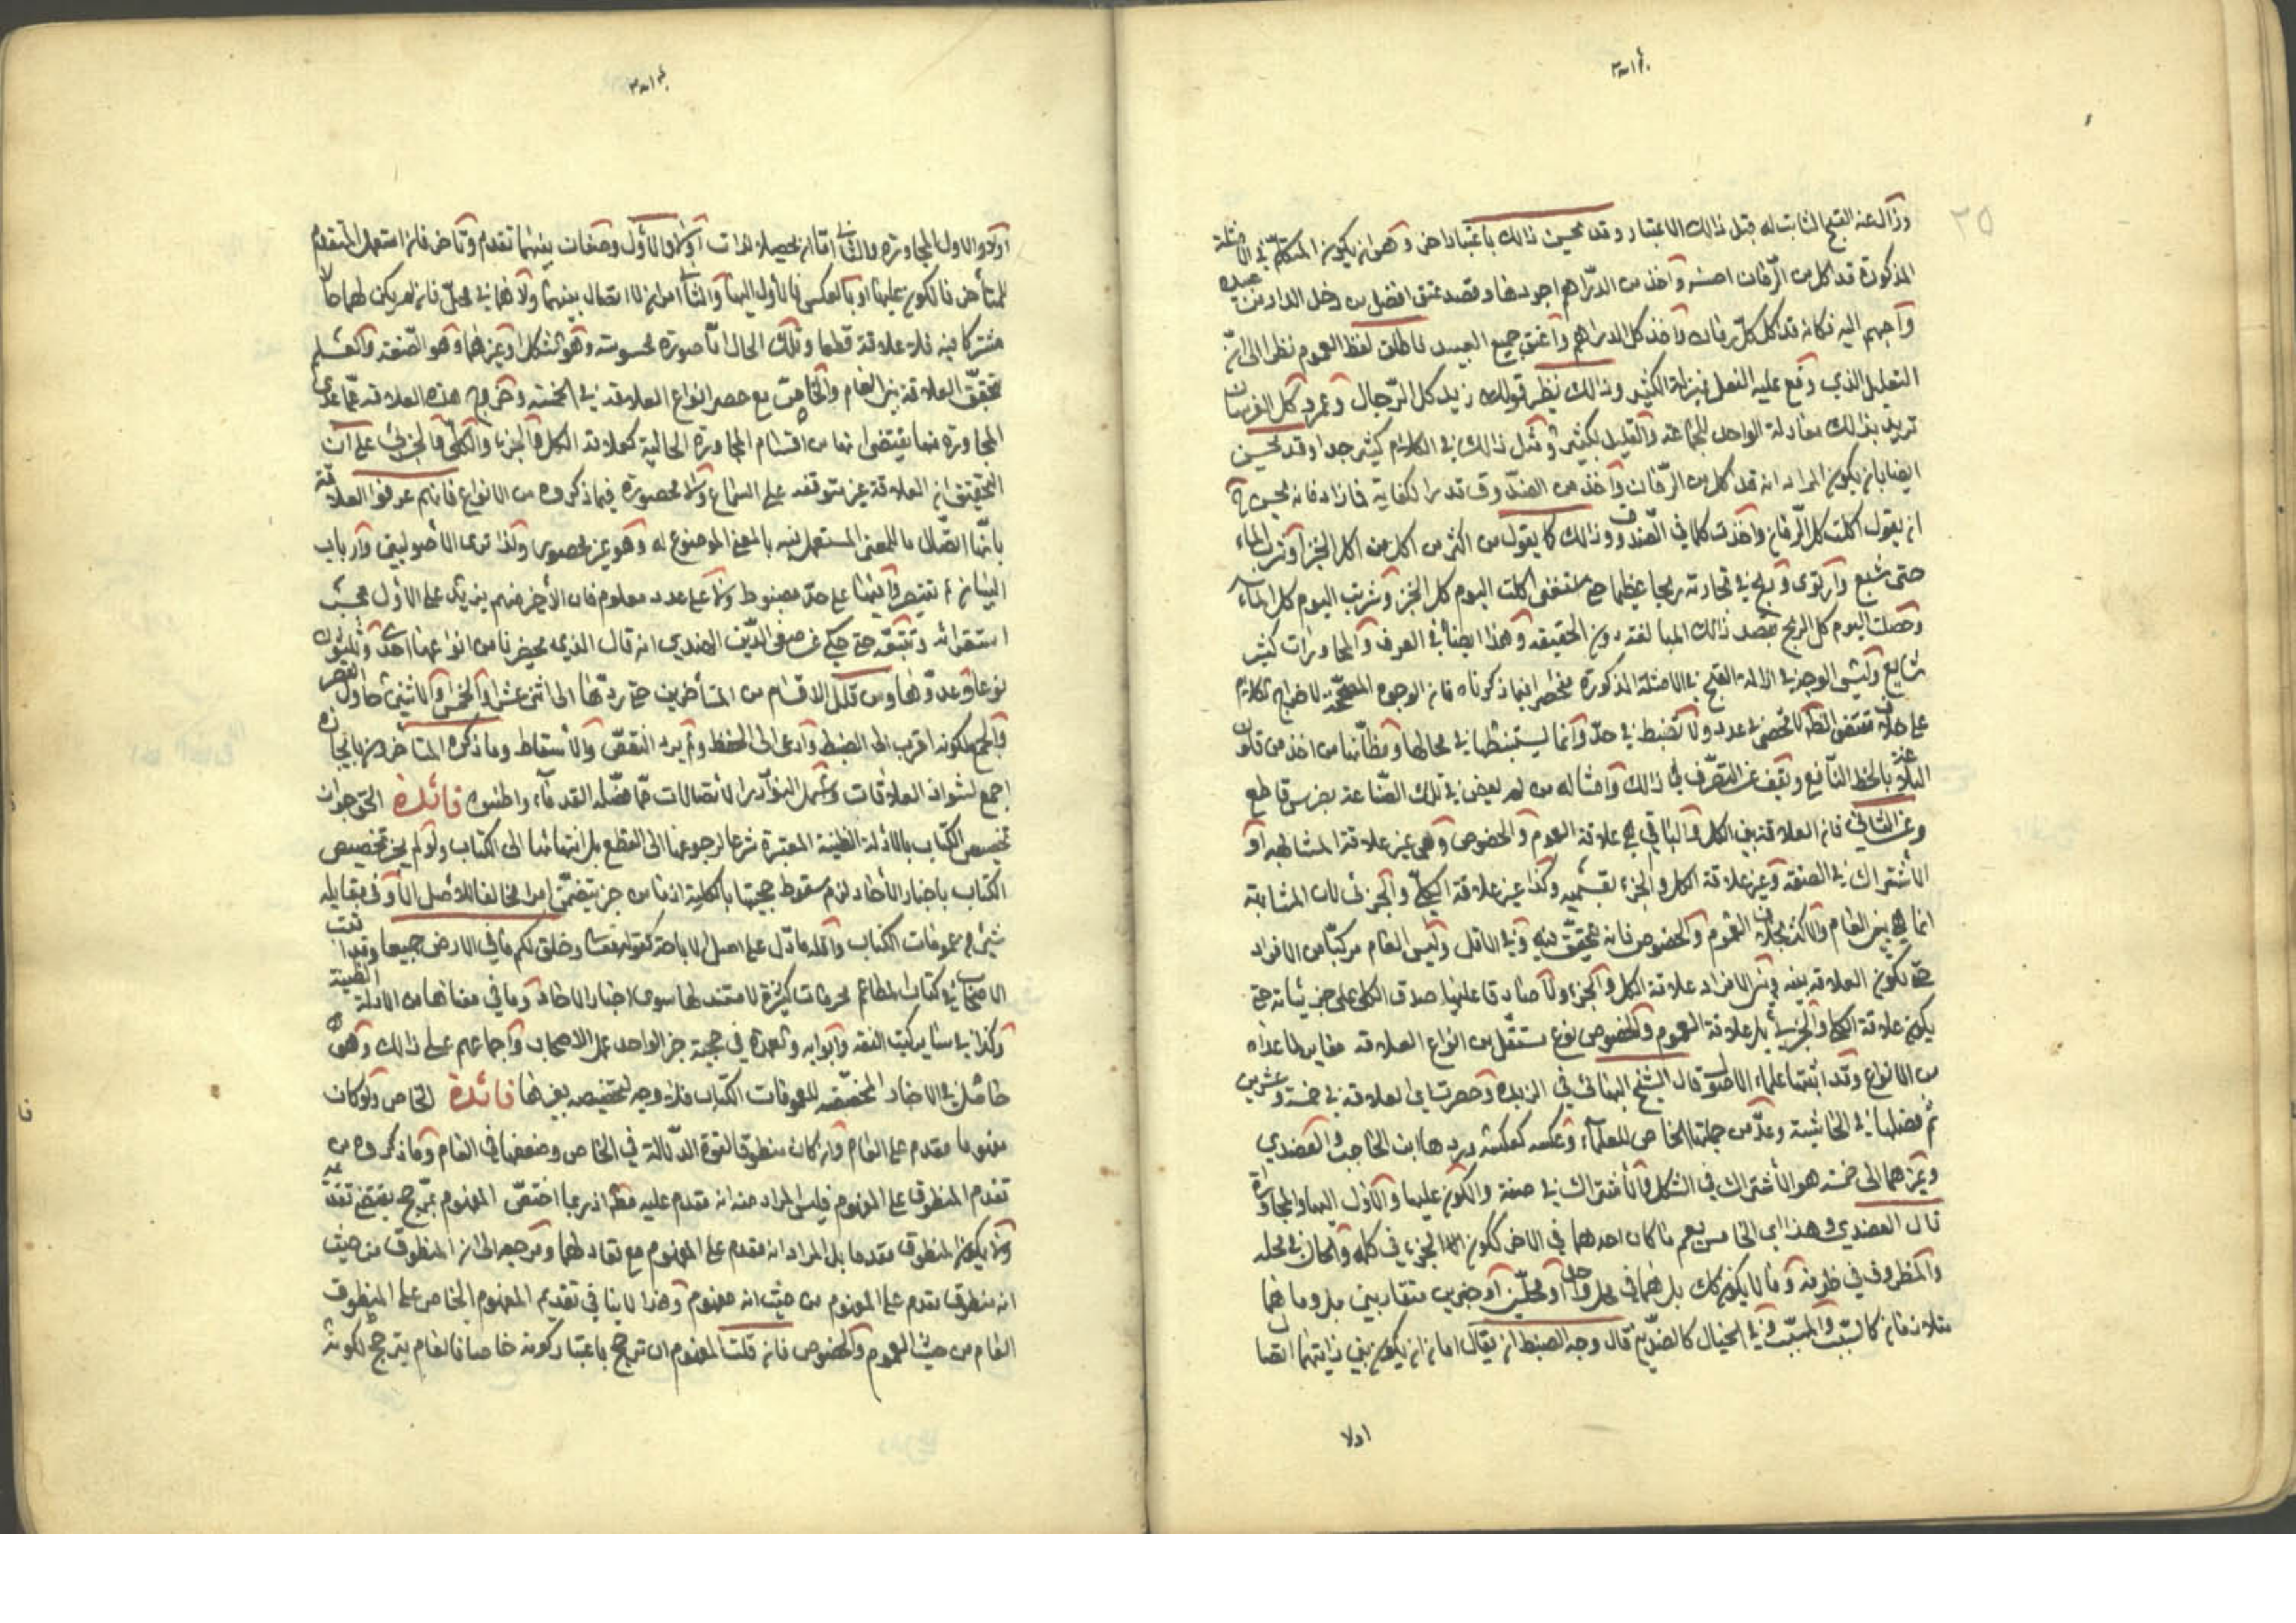 وزال عنه القبح الثابت له قبل ذالك الاعتبار وقد يحسن ذالك باعتبار اخر وهو ان يكون المتكلم في الامثلة
المذكورة قد اكل من الرمان احسنه واخذ من الدراهم اجودها وقصد عتق افضل من دخل الدار من عبيده
واحبهم اليه فكانه قد اكل كل رمان واخذ كل الدراهم واعتق جميع العبيد فاطلق لفظ العموم نظرا الى ان
القليل الذي وقع عليه الفعل بمنزلة الكثير وذالك نظير قولك زيد كل الرجال وعمرو كل الفرسان
تريد بذالك معادلة الواحد للجماعة والقليل لكثير ومثل ذالك في الكلام كثير جدا وقد يحسن
ايضا بان يكون المراد انه قد اكل من الرمان واخذ من الصندوق قدر الكفاية فما زاد فانه يحسن ح
ان يقول اكلت كل الرمان واخذت كلما في الصندوق وذالك كما يقول من اكثر من اكل الخبز وشرب الماء
حتى شبع وارتوى وربح في تجارته ربحا عظيما حتى استغنى اكلت اليوم كل الخبز وشربت اليوم كل الماء
وحصلت اليوم كل الربح بقصد ذالك المبالغة دون الحقيقة وهذا ايضا في العرف والمحاورات كثير
شايع وليس الوجه في ازالة القبح في الامثلة المذكورة منحصرا فيما ذكرناه فان الوجوه المصححة لاخراج الكلام
على خلاف مقتضى الظاهر لا تحصى في عدد ولا تضبط في حد وانما يستنبطها في محالها ومظانها من اخذ من قانون
البلاغة بالحظ النافع ويقف عن التصرف في ذالك وامثاله من لم يعض في تلك الصناعة بضرس قاطع
وعن الثاني فان العلاقة بين الكل والباقي هي علاقة العموم والخصوص وهي غير علاقة المشابهة او
الاشتراك في الصفة وغير علاقة الكل والجزء بقسميه وكذا غير علاقة الكلي والجزئي لان المشابهة
انما هي بين العام والاكثر بخلاف العموم والخصوص فانه يتحقق فيه وفي الاقل وليس العام مركبا من الافراد
حتى تكون العلاقة بينه وبين الافراد علاقة الكل والجزء ولا صادقا عليها صدق الكلي على جزئياته حتى
يكون علاقة الكلي والجزئي بل علاقة العموم والخصوص نوع مستقل من انواع العلاقة مغاير لما عداه
من الانواع وقد اثبتها علماء الاصول قال الشيخ البهائي في الزبدة وحصرت اي العلاقة في خمسة وعشرين
ثم فصلها في الحاشية وعد من جملتها الخاص للعام وعكسه كعكسه وردها ابن الحاجب والعضدي
وغيرهما الى خمسة هو الاشتراك في الشكل والاشتراك في صفة والكون عليها والاول اليها والمجاورة
قال العضدي وهذا اي الخامس يعم ما كان احدهما في الاخر ككون الجزء في كله والحال في محله
والمظروف في ظرفه وما لا يكون كك بل هما في محل واحد او محلين او جزئين متقاربين بل وما هما
متلازمان كالسبب والمسبب وفي الخيال كالضدين ثم قال وجه الضبط ان يقال اما ان يكون بين ذايتهما اتصال
اولا
اولا والاول المجاورة والثاني اما ان يحصلا لذات اولا والاول وصفان بينهما تقدم وتاخر فان استعمل المتقدم
للمتأخر فالكون عليها او بالعكس فالأول اليها والثاني امران لا اتصال بينهما ولا هما في محل فان لم يكن لهما حالا
مشتركا فيه فلا علاقة قطعا وتلك الحال اما صورة محسوسة وهو الشكل او غيرها وهو الصفة
تحقق العلاقة بين العام والخاص مع حصر انواع العلاقة في الخمسة وخروج هذه العلاقة عما عدى
المجاورة منها يقتضي انها من اقسام المجاورة الحالية كعلاقة الكل والجزء والكلي والجزئي على ان
التحقيق ان العلاقة غير متوقفة على السماع ولا محصورة فيما ذكروه من الانواع فانهم عرفوا العلاقة
بانها اتصال ما للمعنى المستعمل فيه بالمعنى الموضوع له وهو غير محصور ولذا ترى الأصوليين وارباب
البيان لم تقتصر فيها على حد مضبوط ولا على عدد معلوم فان الأخير منهم يزيد على الأول بحسب
استقرائه وتتبعه حتى حكي عن صفي الدين الهندي انه قال الذي يحضرنا من انواعها احد وثلثون
نوعا وعدوها ومن قلل الاقسام من المتأخرين حتى ردها الى اثني عشر او الخمس او الاثنين حاول الحصر
والجمع لكونه اقرب الى الضبط وادعى الى الحفظ ولم يرد النقص والاسقاط وما ذكره المتاخرون بايجازه
اجمع لشواذ العلاقات واشمل النوادر الاتصالات مما فصله القدماء واطنبوه فائدة الحق جواز
تخصيص الكتاب بالادلة الظنية المعتبرة شرعا لرجوعها الى القطع بل انتهائها الى الكتاب ولو لم يجز تخصيص
الكتاب باخبار الأحاد لزم سقوط حجيتها بالكلية اذ ما من خبر يتضمن امرا مخالفا للأصل الا وفي مقابله
شئ من عمومات الكتاب واقله ما دل على اصل الاباحة كقوله تعالى وخلق لكم ما في الارض جميعا وقد اثبت
الاصحاب في كتاب المطاعم محرمات كثيرة لا مستند لها سوى اخبار الاحاد وما في معناها من الادلة الظنية
وكذا في سائر كتب الفقه وابوابه والعمدة في حجية خبر الواحد عمل الاصحاب واجماعهم على ذالك وهو
حاصل في الاخبار المخصصة لعمومات الكتاب فلا وجه لتخصيصه بغيرها فائدة الخاص ولو كان
مفهوما مقدم على العام وان كان منطوقا لقوة الدلالة في الخاص وضعفها في العام وما ذكروه من
تقدم المنطوق على المفهوم فليس المراد منه انه مقدم عليه مطلقا اذ ربما اختص المفهوم بمرجح يقتضي تقديمه
ولا يكون المنطوق مقدما بل المراد انه مقدم على المفهوم مع تعادلهما ومرجعه الى ان المنطوق من حيث
انه منطوق مقدم على المفهوم من حيث انه مفهوم وهذا لا ينافي تقديم المفهوم الخاص على المنطوق
العام من حيث العموم والخصوص فان قلت المفهوم ان ترجح باعتبار كونه خاصا فالعام يترجح لكونه